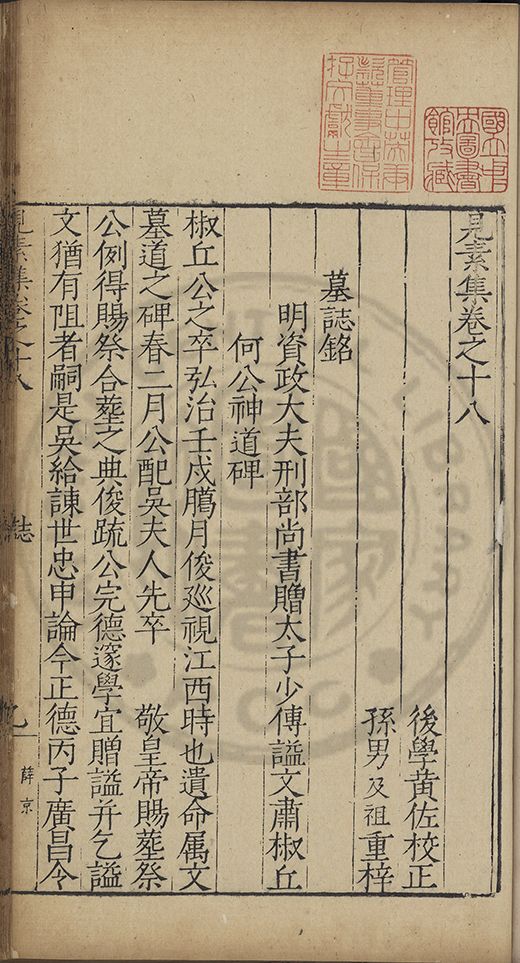 見素集卷之十八
後學黃佐校正
孫男及祖重梓
墓誌銘
明資政大夫刑部尚書贈太子少傅謚文肅椒丘
何公神道碑
椒丘公之卒弘治壬戌臈月俊廵視江西時也遺命属文
墓道之碑春二月公配吳夫人先卒 敬皇帝賜塟祭
公例得賜祭合塟之典俊疏公完德邃學宜贈謚并乞謚
文猶有阻者嗣是吳給諫世忠申論今正德丙子廣昌令
見素集卷之十八
誌
薛京
國立中央圖書館攷藏
管理中英庚款董事會保存文獻之章